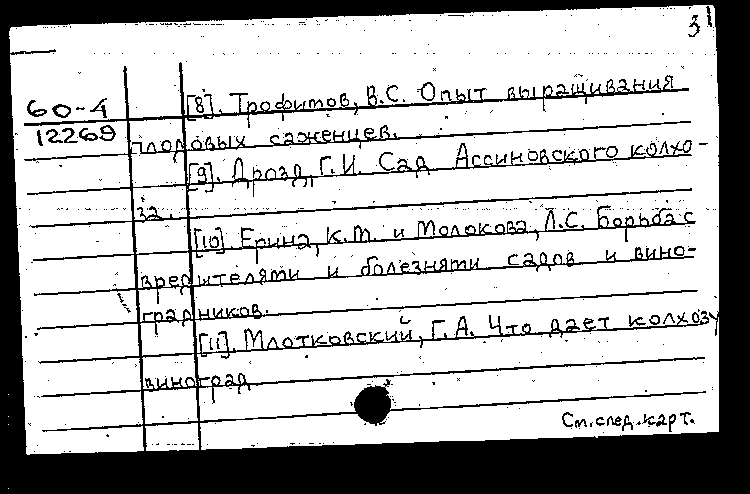 31
60-4
12269
[8]. Трофимов, В.С. Опыт выращивания
плодовых саженцев.
[9]. Дрозд, Г.И. Сад Ассиновского колхо-
за.
[10]. Ерина, К.М. и Молокова, Л.С. Борьба с
вредителями и болезнями садов и вино-
градников.
[11]. Млотковский, Г.А. Что дает колхозу
виноград
См. след. карт.